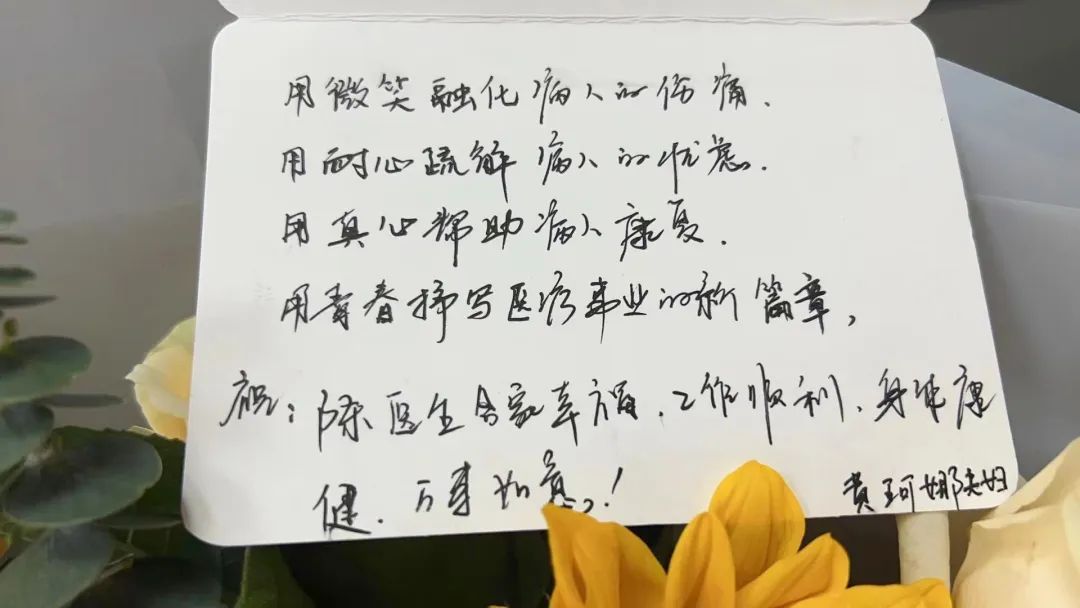 用微笑融化病人的伤痛.
用耐心疏解病人的忧虑.
用真心帮助病人康复.
用青春抒写医疗事业的新篇章,
祝:陈医生合家幸福、工作顺利、身体康
健.万事如意!
黄珂娜夫妇